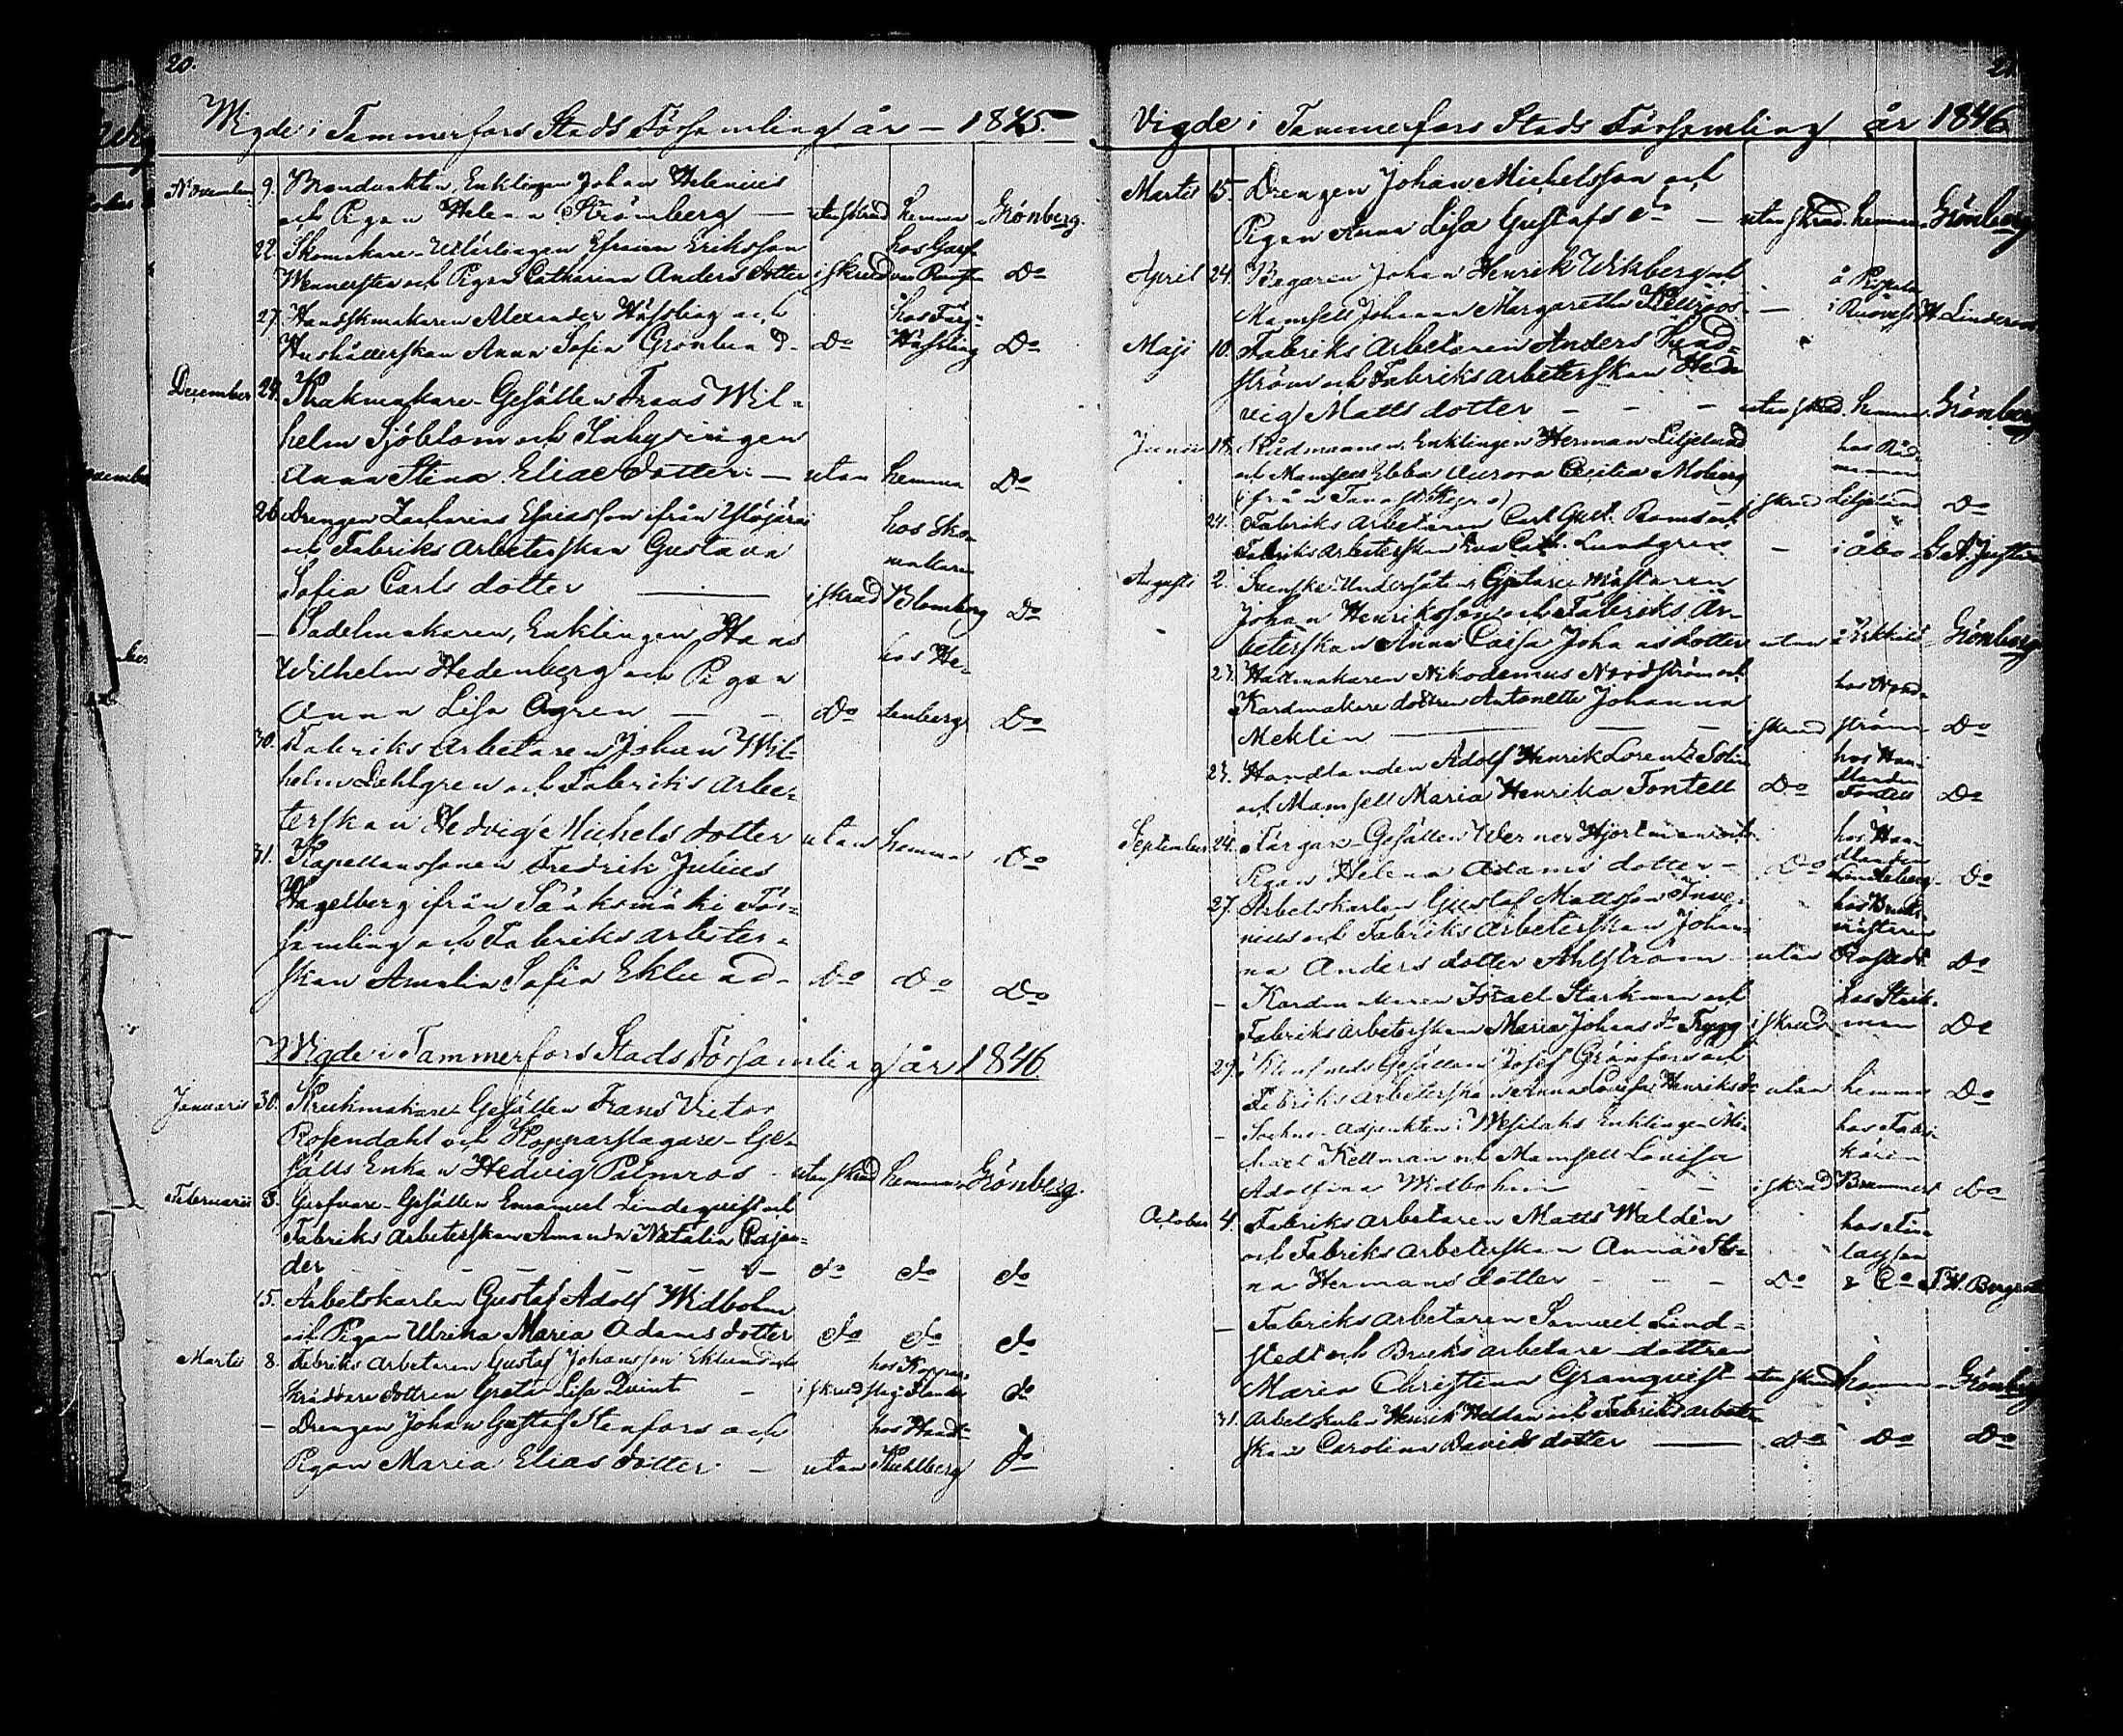 20.
Wigde i Tammerfors Stads Församling år - 1845.
November 9. Brandvakten, Enklingen Johan Helenius
och Pigan Helena Strömberg — utan skrud hemma Grönberg.
22. Skomakare-Utlärlingen Efraim Eriksson hos Garf-
Wennersten och Pigan Catharina Anders dotter i skrud Do
27. Handskmakaren Alexander Häfsling och hos Färg-
Hushållerskan Anna Sofia Grönlund - Do Häfsling Do
December 24. Krukmakare-Gesällen Frans Wil-
helm Sjöblom och Inhysingen
Anna Stina Eliae dotter — utan hemma Do
26. Drengen Zacharias Esaiasson ifrån Ylöjärvi hos Sko-
och Fabriks arbeterskan Gustava makaren
Sofia Carls dotter — i skrud Blomberg Do
— Sadelmakaren, Enklingen Hans
Wilhelm Hedenberg och Pigan hos He-
Anna Lisa Ågren — — Do denberg Do
30. Fabriks arbetaren Johan Wil-
helm Dahlgren och Fabriks arbe-
terskan Hedvig Michels dotter utan hemma Do
31. Kapellanssonen Fredrik Julius
Hagelberg ifrån Sääksmäki För-
samling och Fabriks arbeter-
skan Amalia Sofia Eklund - Do Do Do
Wigde i Tammerfors Stads Församling år 1846
Januarii 30. Krukmakare-Gesällen Frans Victor
Rosendahl och Kopparslagare-Ge-
sälls Enkan Hedvig Palmros - utan skrud hemma Grönberg.
Februarii 8. Garfvare-Gesällen Emanuel Lindeqvist och
Fabriks Arbeterskan Amanda Natalia Cajan-
der - - - - - - do do do
15. Arbetskarlen Gustaf Adolf Widbohm
och Pigan Ulrika Maria Adams dotter do do do
Martii 8. Fabriks arbetaren Gustaf Johansson Eklund och hos Koppar-
Skräddare dottren Greta Lisa Qvint - i skrud slag. do
— Drengen Johan Gustaf Stenfors och hos Handl:
Pigan Maria Elias dotter - utan Kuhlberg do
Vigde i Tammerfors Stads Församling år 1846
Martii 15. Drengen Johan Michelsson och
Pigan Anna Lisa Gustafs do — utan skrud hemma Grönberg
April 24. Begaren Johan Henrik Wikberg och å
Mamsell Johanna Margaretha — i Ruovesi
Maji 10. Fabriks Arbetaren Anders Lind-
ström och Fabriks arbeterskan Hed-
vig Matts dotter - - - utan skrud hemma Grönberg
Junii 18. Rådmannen, Enklingen Herman Liljelund hos Råd-
och Mamsell Ebba Aurora Cecilia Moberg mannen
i skrud Liljelund Do
24. Fabriks Arbetaren Carl Gust.
Fabriks arbeterskan Eva Cath. Lundgren - i Åbo
Augusti 2. Svenske Undersåten
Johan Henriksson och Fabriks Ar-
beterskan Anna Caisa Johans dotter utan Grönberg
23. Hattmakaren Nikodemus Nordström och hos Nord-
Kardmakare dottren Antonette Johanna
Meklin — — — i skrud ström Do
27. Handlanden Adolf Henrik Lorentz Solin hos Han-
dlanden
och Mamsell Maria Henrika Fontell Do Fontell Do
September 24. Färgare-Gesällen Werner Hjortman och hos Han-
dlanden
Pigan Helena Adams dotter - Do Lindeberg Do
27. Arbetskarlen Gustaf Mattsson hos Bruks-
nius och Fabriks arbeterskan Johan- mästaren
na Anders dotter Ahlström - utan Do
— Kardmakaren Israel Starkman och hos Stark-
Fabriks arbeterskan Maria Johans do Trygg i skrud man Do
29. Gesällen Josef Grönfors och
Fabriks arbeterskan Anna Lovisa Henriks do utan hemma Do
— Sockne-Adjunkten i Wesilaks Enklingen Mi- hos Fabri-
chael Kellman och Mamsell Lovisa kören
Adolfina Widbohm - - i skrud Do
October 4. Fabriks arbetaren Matts Waldén hos Fin-
och Fabriks arbeterskan Anna Sti- layson
na Hermans dotter - - - Do & Co
— Fabriks arbetaren Samuel Lind-
stedt och Bruks arbetare dottren
Maria Christina Granqvist utan skrud hemma Grönberg
31. Arbetskarlen Henrik Heldan och Fabriks arbeter-
skan Carolina Davids dotter — Do Do Do